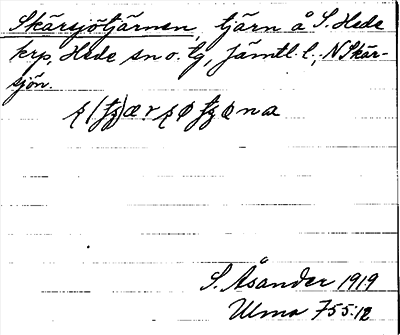 Skärsjötjärnen, tjärn å S. Hede
krp, Hede sn o. tg. Jämtl. l., N Skär-
sjön.
S. Åsander 1919
Ulma 755:12